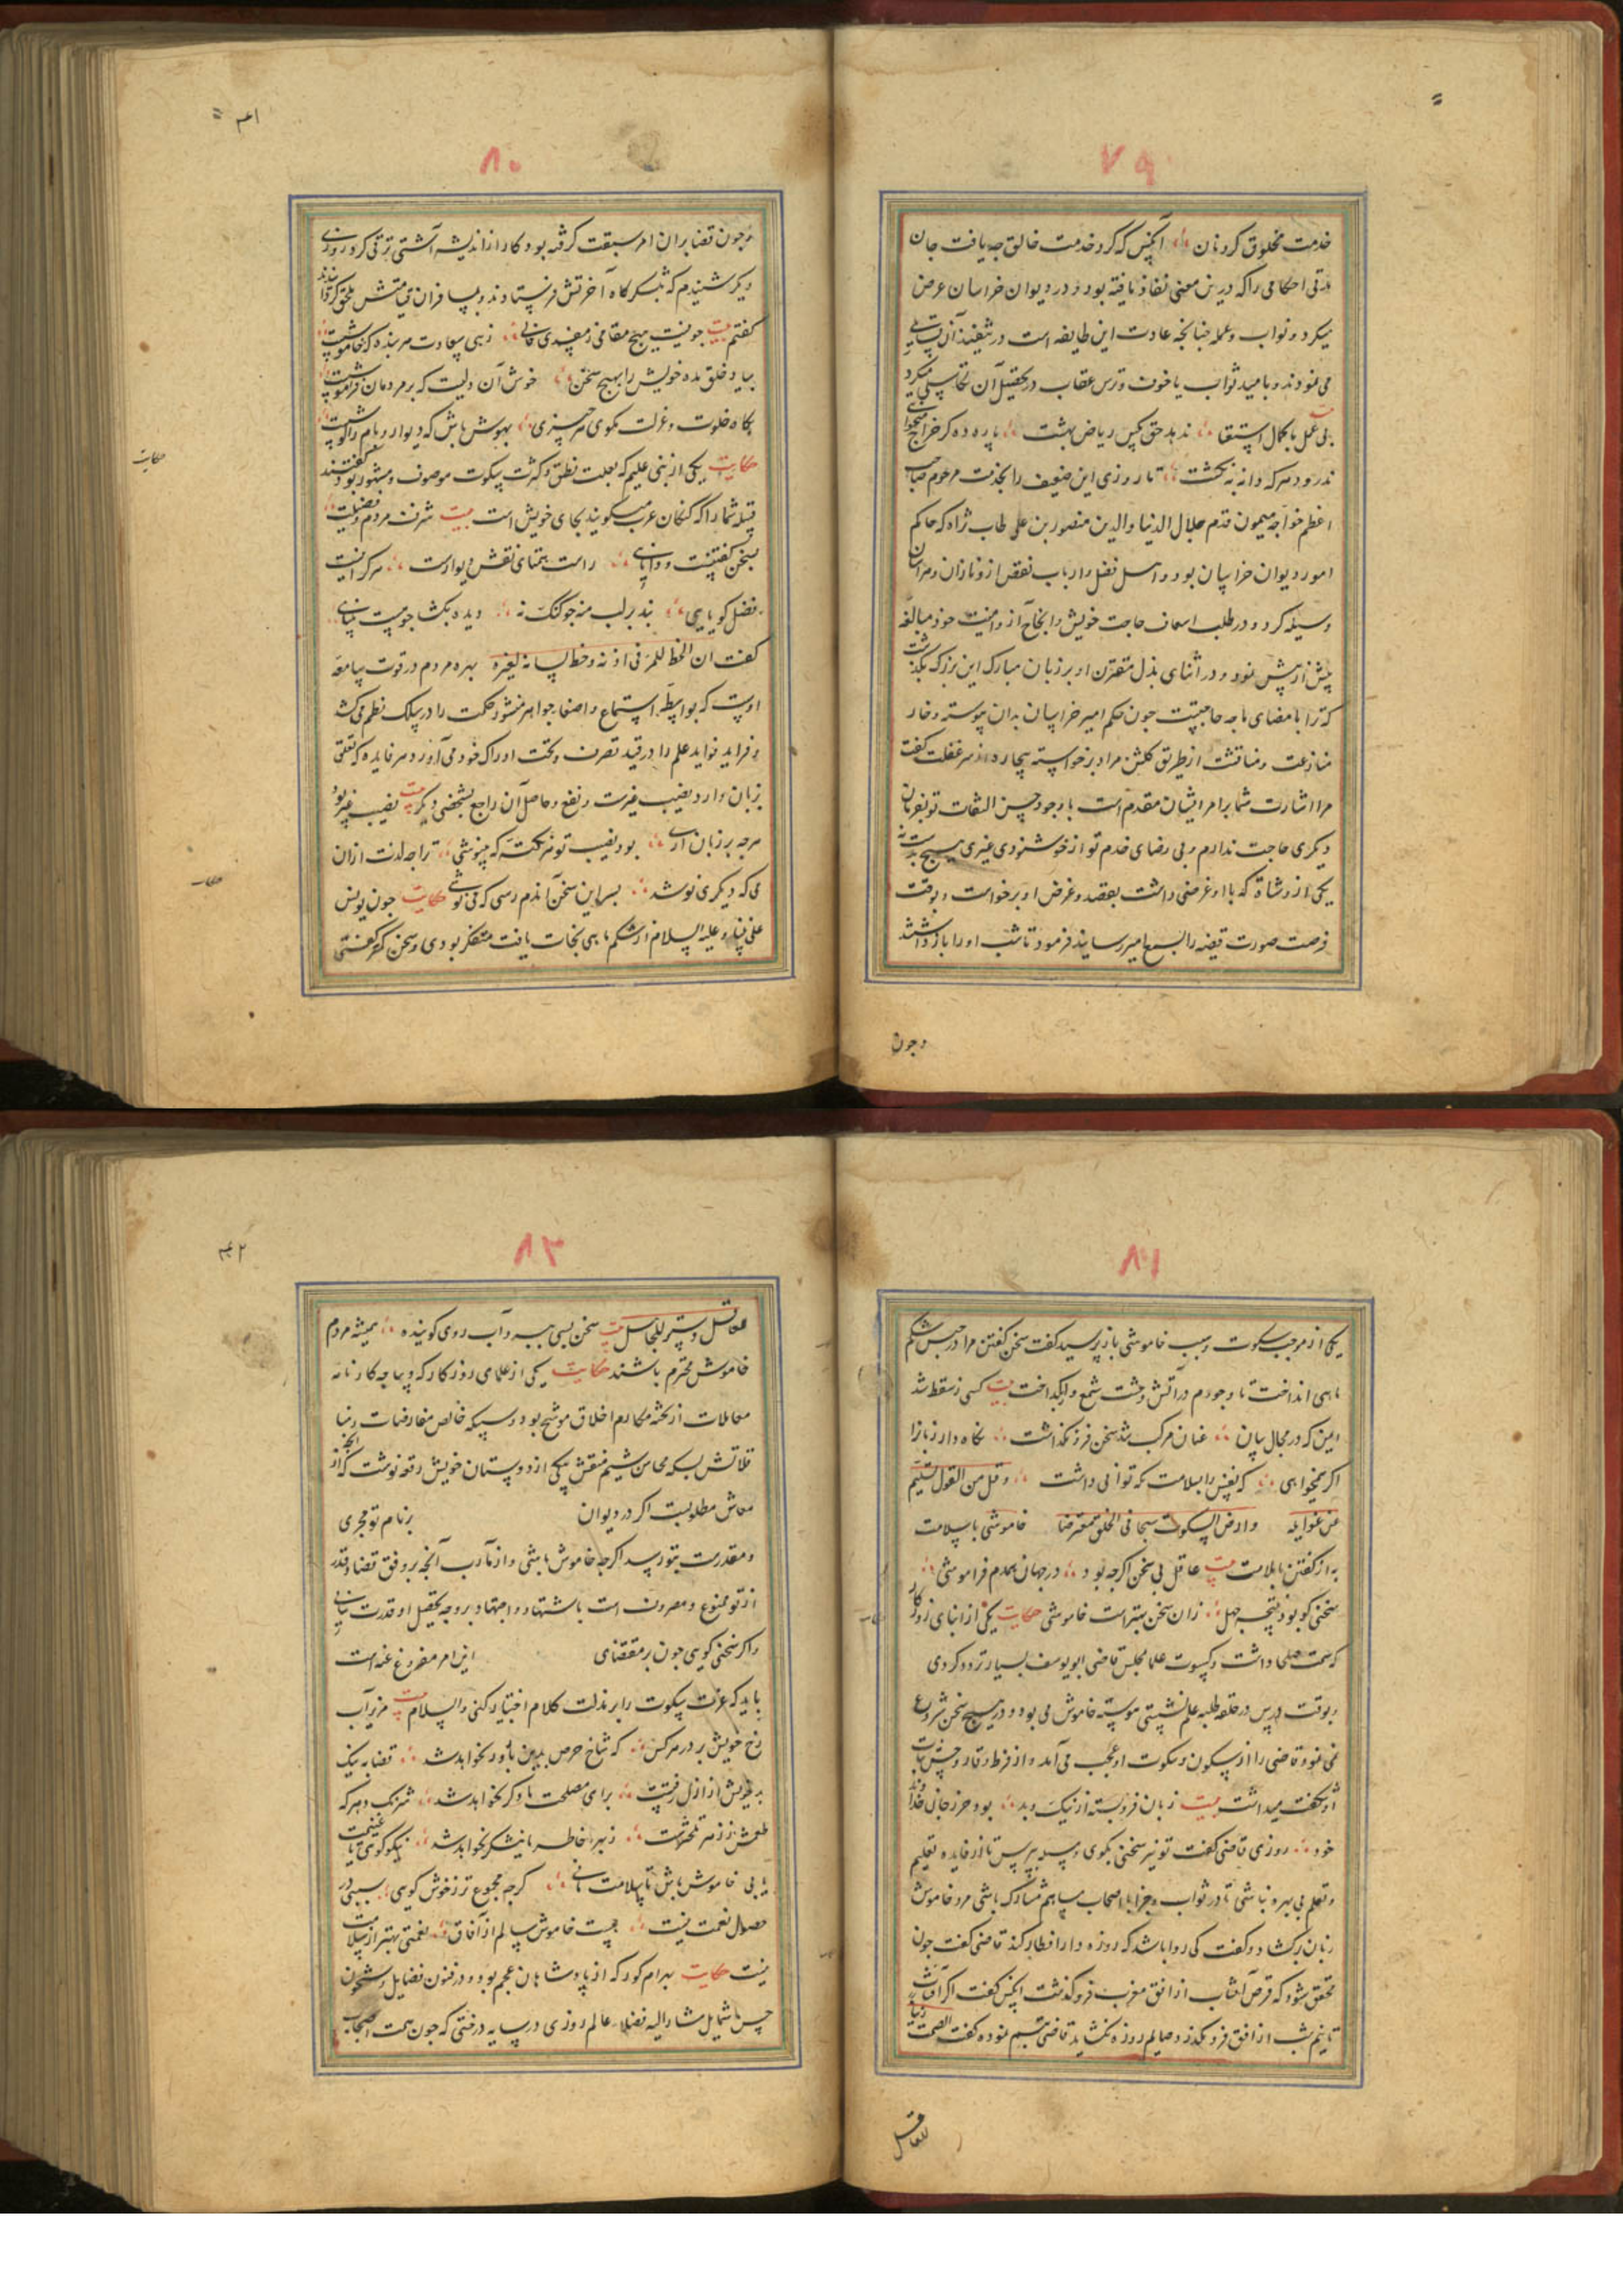 ۷۹
خدمت مخلوق کردنان آنکس که کرد خدمت خالق چه یافت جان
احکامی را که درین معنی نفاذ نایافته بود و در دیوان خراسان عرض
میکرد و نواب و عمله چنانچه عادت این طایفه است در تنفیذ آن
می نمودند و بامید ثواب یا خوف و ترس عقاب در تحصیل آن میکرد
بی عمل با کمال استقا ندهد حق بکس ریاض بهشت
ندرود هر که دانه نه بکشت تا روزی این ضعیف را بخدمت مرحوم صاحب
اعظم خواجه میمون قدم جلال الدنیا والدین منصور بن علی طاب ثراه که حاکم
امور دیوان خراسان بود و اهل فضل و ارباب
وسیله کرد و در طلب اسعاف حاجت خویش و انجاح مبالغه
پیش از پیش نمود و در اثنای بر زبان مبارک این بزرگ بگذشت
که ترا بامضای ما چه حاجتست چون حکم امیر خراسان بدان پیوسته و خار
منازعت و مناقشت از طریق کلشن مراد برخواسته بیچاره از سر غفلت کفت
مرا اشارت شما بر امر ایشان مقدم است با وجود حسن التفات تو بفرمان
دیکری حاجت ندارم و بی رضای خدم تو از خوشنودی غیری هیچ
یکی از وشاة که با او غرضی داشت بقصد و غرض او برخواست و بوقت
فرصت صورت قضیه را بسمع امیر رسانید فرمود تا شب او را بازداشتند
وجون
۸۰
وجون قضا بران امر سبقت کرفته بود کار از اندیشه آشتی ترقی کرد روزی
دیکر شنیدم که آخرتش فرستادند و بمسافران قیامتش ملحق کردانیدند
کفتم بیت جو نیست هیچ مقامی ز مفسدی خالی زهی سعادت هر بنده که خاموشست
بیاد خلق مده خویش را بهیچ سخن خوش آن دلیست که بر مردمان فراموشست
بکاه خلوت و عزلت مکوی هر چیزی بهوش باش که دیوار و بام را کوشست
حکایت یکی از بنی علیم که بعلت نطق و کثرت سکوت موصوف و مشهور بود کفتند
قبیله شما را که کنکان عرب میکویند بجای خویش است بیت شرف مردم و فضیلت
سخن کفتنست و دانایی راست همتای نقش دیوارست هر کرا نیست
فضل کویایی بند بر لب منه جو کنک نه دیده بکشا جو نیست بینایی
کفت ان الحظ للمرء فی اذنه وحظ لسانه لغیره بهره مردم در قوت سامعه
اوست که بواسطه استماع و اصغا جواهر منثور حکمت را در سلک نظم می کشد
و فراید فواید علم را در قید تصرف و تحت ادراک خود می آورد و هر فایده که تعلق
بزبان دارد نصیب غیرست و نفع و حاصل آن راجع بشخصی دیکر بیت نصیب غیر بود
هرچه بر زبان آری بود نصیب تو هر نکته که مینوشی ترا چه لذت ازان
می که دیکری نوشد بسر این سخن آندم رسی که می نوشی حکایت جون یونس
علی نبینا و علیه السلام از شکم ماهی نجات یافت متفکر بودی و سخن کمتر کفتی
حکایت
حکایت
۸۱
یکی از موجب سکوت و سبب خاموشی باز پرسید کفت سخن کفتن مرا در حبس شکم
ماهی انداخت تا وجودم در آتش وحشت شمع وار بکداخت بیت کسی ز سقط شد
ایمن که در مجال بیان عنان مرکب تند سخن فرو نکذاشت نکاه دار زبانرا
اکر همیخواهی که نفس را بسلامت نکه توانی داشت وقل من القول تسلیم
من غوایله وارض السکوت سجا فی الخلق معترضا خاموشی با سلامت
به از کفتن با ملامت بیت عاقل بی سخن اکرچه بود در جهان همدم فراموشی
سخنی کو بود نتیجه جهل زان سخن بهتر است خاموشی حکایت یکی از ابنای روزکار
که سمت صلحی داشت و کسوت علما بمجلس قاضی ابو یوسف بسیار تردد کردی
و بوقت درس در حلقه طلبه علم نشستی پیوسته خاموش می بود و در هیچ سخن شروع
نمی نمود قاضی را از سکون و سکوت او عجب می آمد و از فرط وقار و حسن ثبات
او شکفت میداشت بیت زبان فرو بسته از نیک و بد بود حرز جان خداوند
خود روزی قاضی کفت تو نیز سخنی بکوی و مسئله بپرس تا از فایده تعلیم
و تعلم بی بهره نباشی تا در ثواب و جزا با اصحاب مساهم و مشارک باشی مرد خاموش
زبان برکشاد و کفت کی روا باشد که روزه دار افطار کند قاضی کفت جون
محقق شود که قرص آفتاب از افق مغرب فرو کذشت آنکس کفت اکر آفتاب
تا نیم شب از افق فرو نکذرد و صایم روزه نکشاید قاضی تبسم نمود و کفت الصمت زین
للعاقل
۴۲
۸۲
للعاقل وستر للجاهل بیت سخن بسی ببرد آب روی کوینده همیشه مردم
خاموش محترم باشند حکایت یکی از علمای روزکار که دیباجه کارنامه
معاملات از نکته مکارم اخلاق موشح بود و سبیکه خالص مفاوضات دنیا
بسکه محاسن شیم منقش بیکی از دوستان خویش رقعه نوشت که از آنچه
معاش مطلوبست اکر در دیوان بر نام تو مجری
و مقدرست بتو رسد اکرچه خاموش باشی و از مآرب آنچه بر وفق قضا و قدر
از تو ممنوع و مصروف است باشتهاد و اجتهاد بر وجه تحصیل او قدرت نیابی
واکر سخنی کویی جون بر مقتضای این امر مفروغ عنه است
باید که عزت سکوت را بر مذلت کلام اختیار کنی والسلام بیت مریز آب
رخ خویش بر در هر کس که شاخ حرص بدین بارور نخواهد شد قضا به نیک
بد خویش از ازل رفتست برای مصلحت ما دکر نخواهد شد
طعمش ز زهر تلخترست خاطر ما نیشکر نخواهد شد نیکو کوی تا غنیمت
یابی خاموش باش تا بسلامت مانی کرچه مجموع تر ز خوش کویی سببی در
حصول نعمت نیست جیست خاموش سالم از آفاق نعمتی بهتر از سلامت
نیست حکایت بهرام کور که از پادشاهان عجم بود و در فنون فضایل
حسن شمایل مشار الیه فضلاء عالم روزی در سایه درختی که جون همت اصحاب